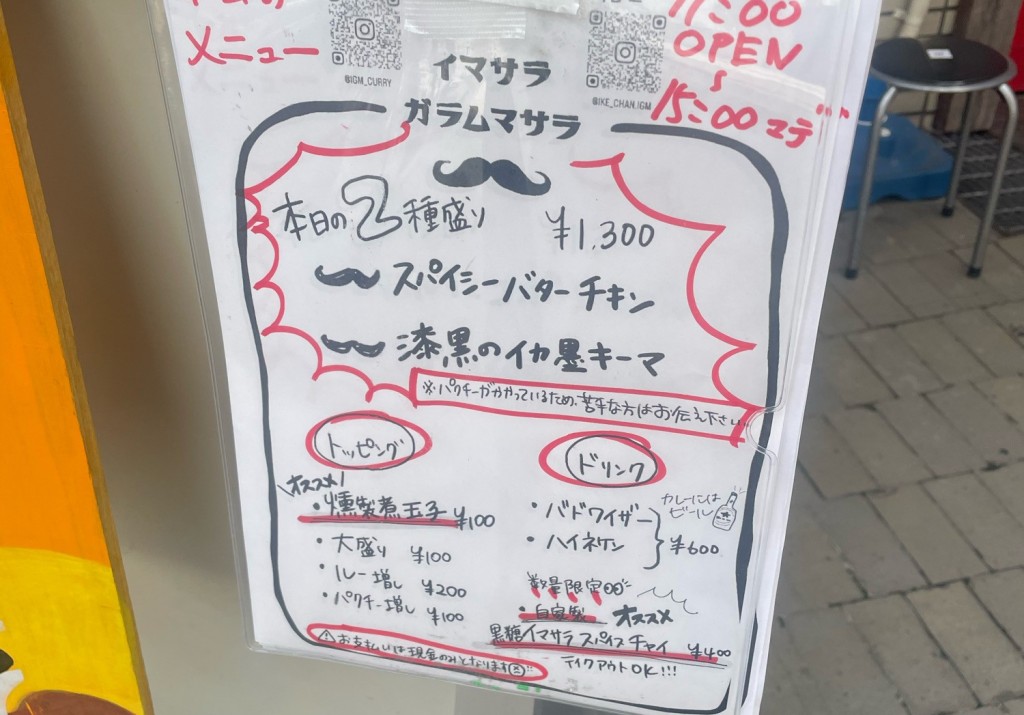 メニュー
@IGM_CURRY
@IKE_CHAN.IGM
11:00
OPEN
～
15:00マデ
イマサラ
ガラムマサラ
本日の2種盛り ¥1,300
スパイシーバターチキン
漆黒のイカ墨キーマ
※パクチーがかかっているため、苦手な方はお伝え下さい
トッピング
\オススメ/
・燻製煮玉子 ¥100
・大盛り ¥100
・ルー増し ¥200
・パクチー増し ¥100
⚠お支払いは現金のみとなります
ドリンク
カレーには
ビール
・バドワイザー
・ハイネケン
¥600
数量限定
・自家製 オススメ
黒糖イマサラスパイスチャイ ¥400
テイクアウトOK!!!